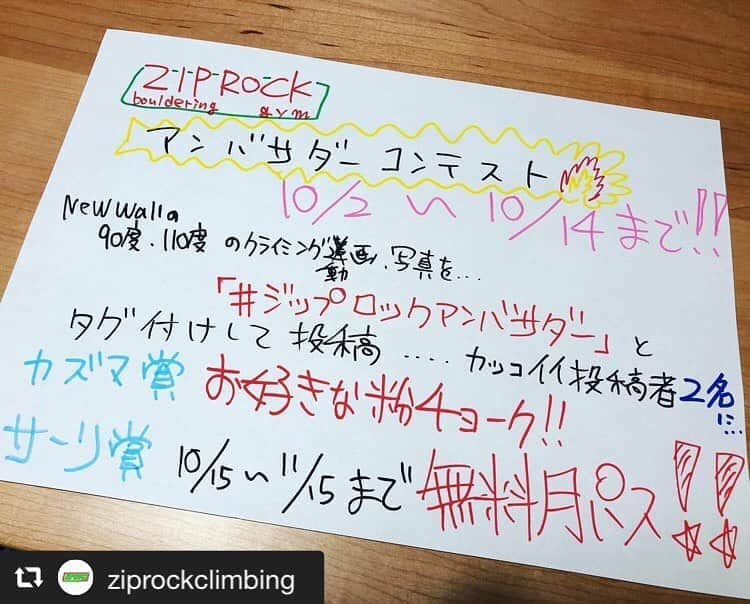 ZIPROCK
bouldering gym
アンバサダーコンテスト
10/2〜10/14まで!!
NEW Wallの
90度、110度のクライミング動画、写真を...
「#ジップロックアンバサダー」と
タグ付けして投稿....カッコイイ投稿者2名に...
カズマ賞 お好きな粉チョーク!!
サーリ賞 10/15〜11/15まで無料月パス!!
ziprockclimbing